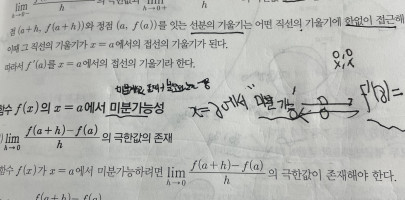 lim h→0 h h→0+ h
점 (a+h, f(a+h))와 정점 (a, f(a))를 잇는 선분의 기울기는 어떤 직선의 기울기에 한없이 접근해
이때 그 직선의 기울기가 x=a에서의 접선의 기울기가 된다.
따라서 f'(a)를 x=a에서의 접선의 기울기라 한다.
함수 f(x)의 x=a에서 미분가능성 x=a에서 "미분가능" f'(a)=
lim h→0 f(a+h)-f(a) / h 의 극한값의 존재
함수 f(x)가 x=a에서 미분가능하려면 lim h→0 f(a+h)-f(a) / h 의 극한값이 존재해야 한다.
f(a+h)-f(a)